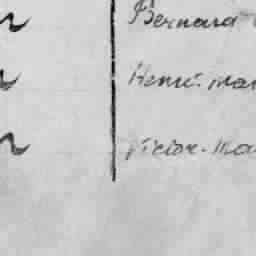 Bernard
Henri-Mar
Victor-Ma